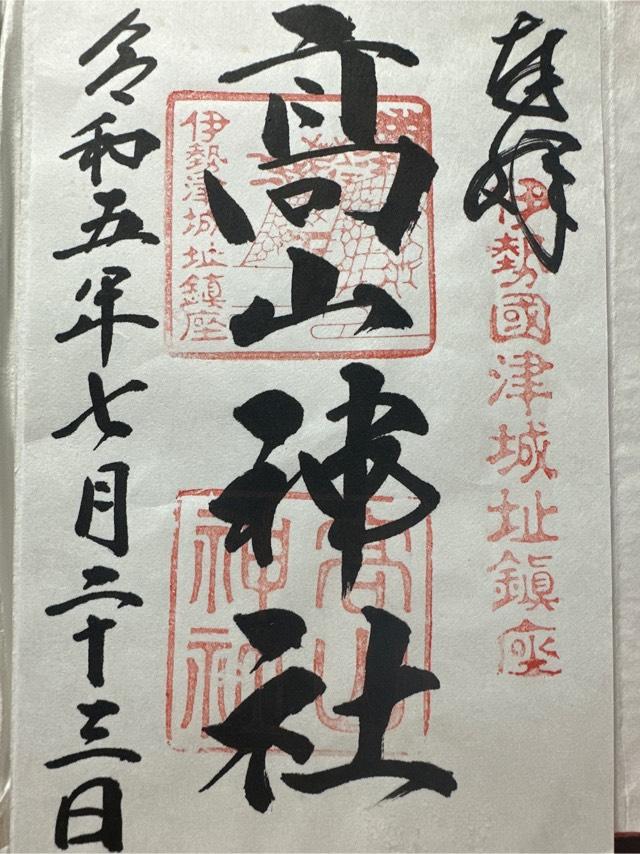 奉拝
伊勢國津城址鎮座
高山神社
伊勢津城址鎮座
高山
神社
令和五年七月二十三日